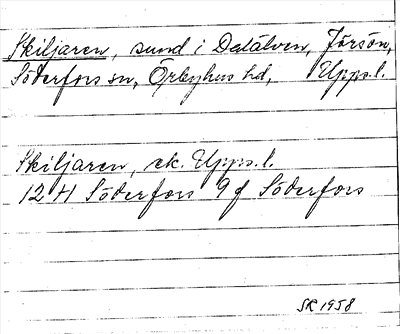 Skiljaren, sund i Dalälven, Jörsön,
Söderfors sn, Örbyhus hd, Upps. l.
Skiljaren, ek. Upps. l.
12 H Söderfors 9 f Söderfors
SR 1958